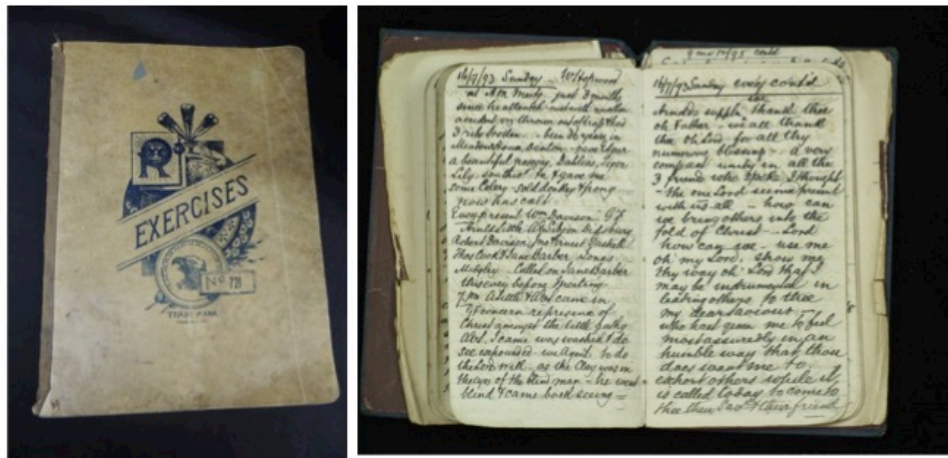 R
EXERCISES
No 721
TRADE MARK
16/7/93 Sunday - W Hopwood
at A.M. Meetg - just 3 months
since he attended - met with another
accident viz thrown out of trap & has
3 ribs broken - been 26 years in
Denton
a beautiful Dahlias, Tiger
Lily he & gave me
some Celery - sold donkey & pony
now has call
Eveng present Wm Davison G F
Arnold Little Didsbury
Robert Davison, Ernest
Thos Cook & Jane Barber
Midgley Called on Jane Barber
this eveg before Meeting
7 pm A Little & came in
G F concern represence of
Christ amongst the little
I came was washed & do
see expounded - we to do
the Lord will - as the Clay was in
the eyes of the blind man - he went
blind & came back seeing =
9 mo 10/95 contd
16/7/93 Sunday eveg contd
suppln thank thee
oh Father - we all thank
thee oh Lord for all thy
numerous blessings - a very
compact unity in all the
3 friends who spoke I thought
- the one Lord seemed present
with us all - how can
we bring others into the
fold of Christ - Lord
how can we - use me
oh my Lord, show me
thy way oh Lord that I
may be instrumental in
leading others to thee
my dear Saviour
who hast given me to feel
most assuredly in an
humble way that thou
does want me to
exhort others while it
is called today to come to
thee their Savr & their friend